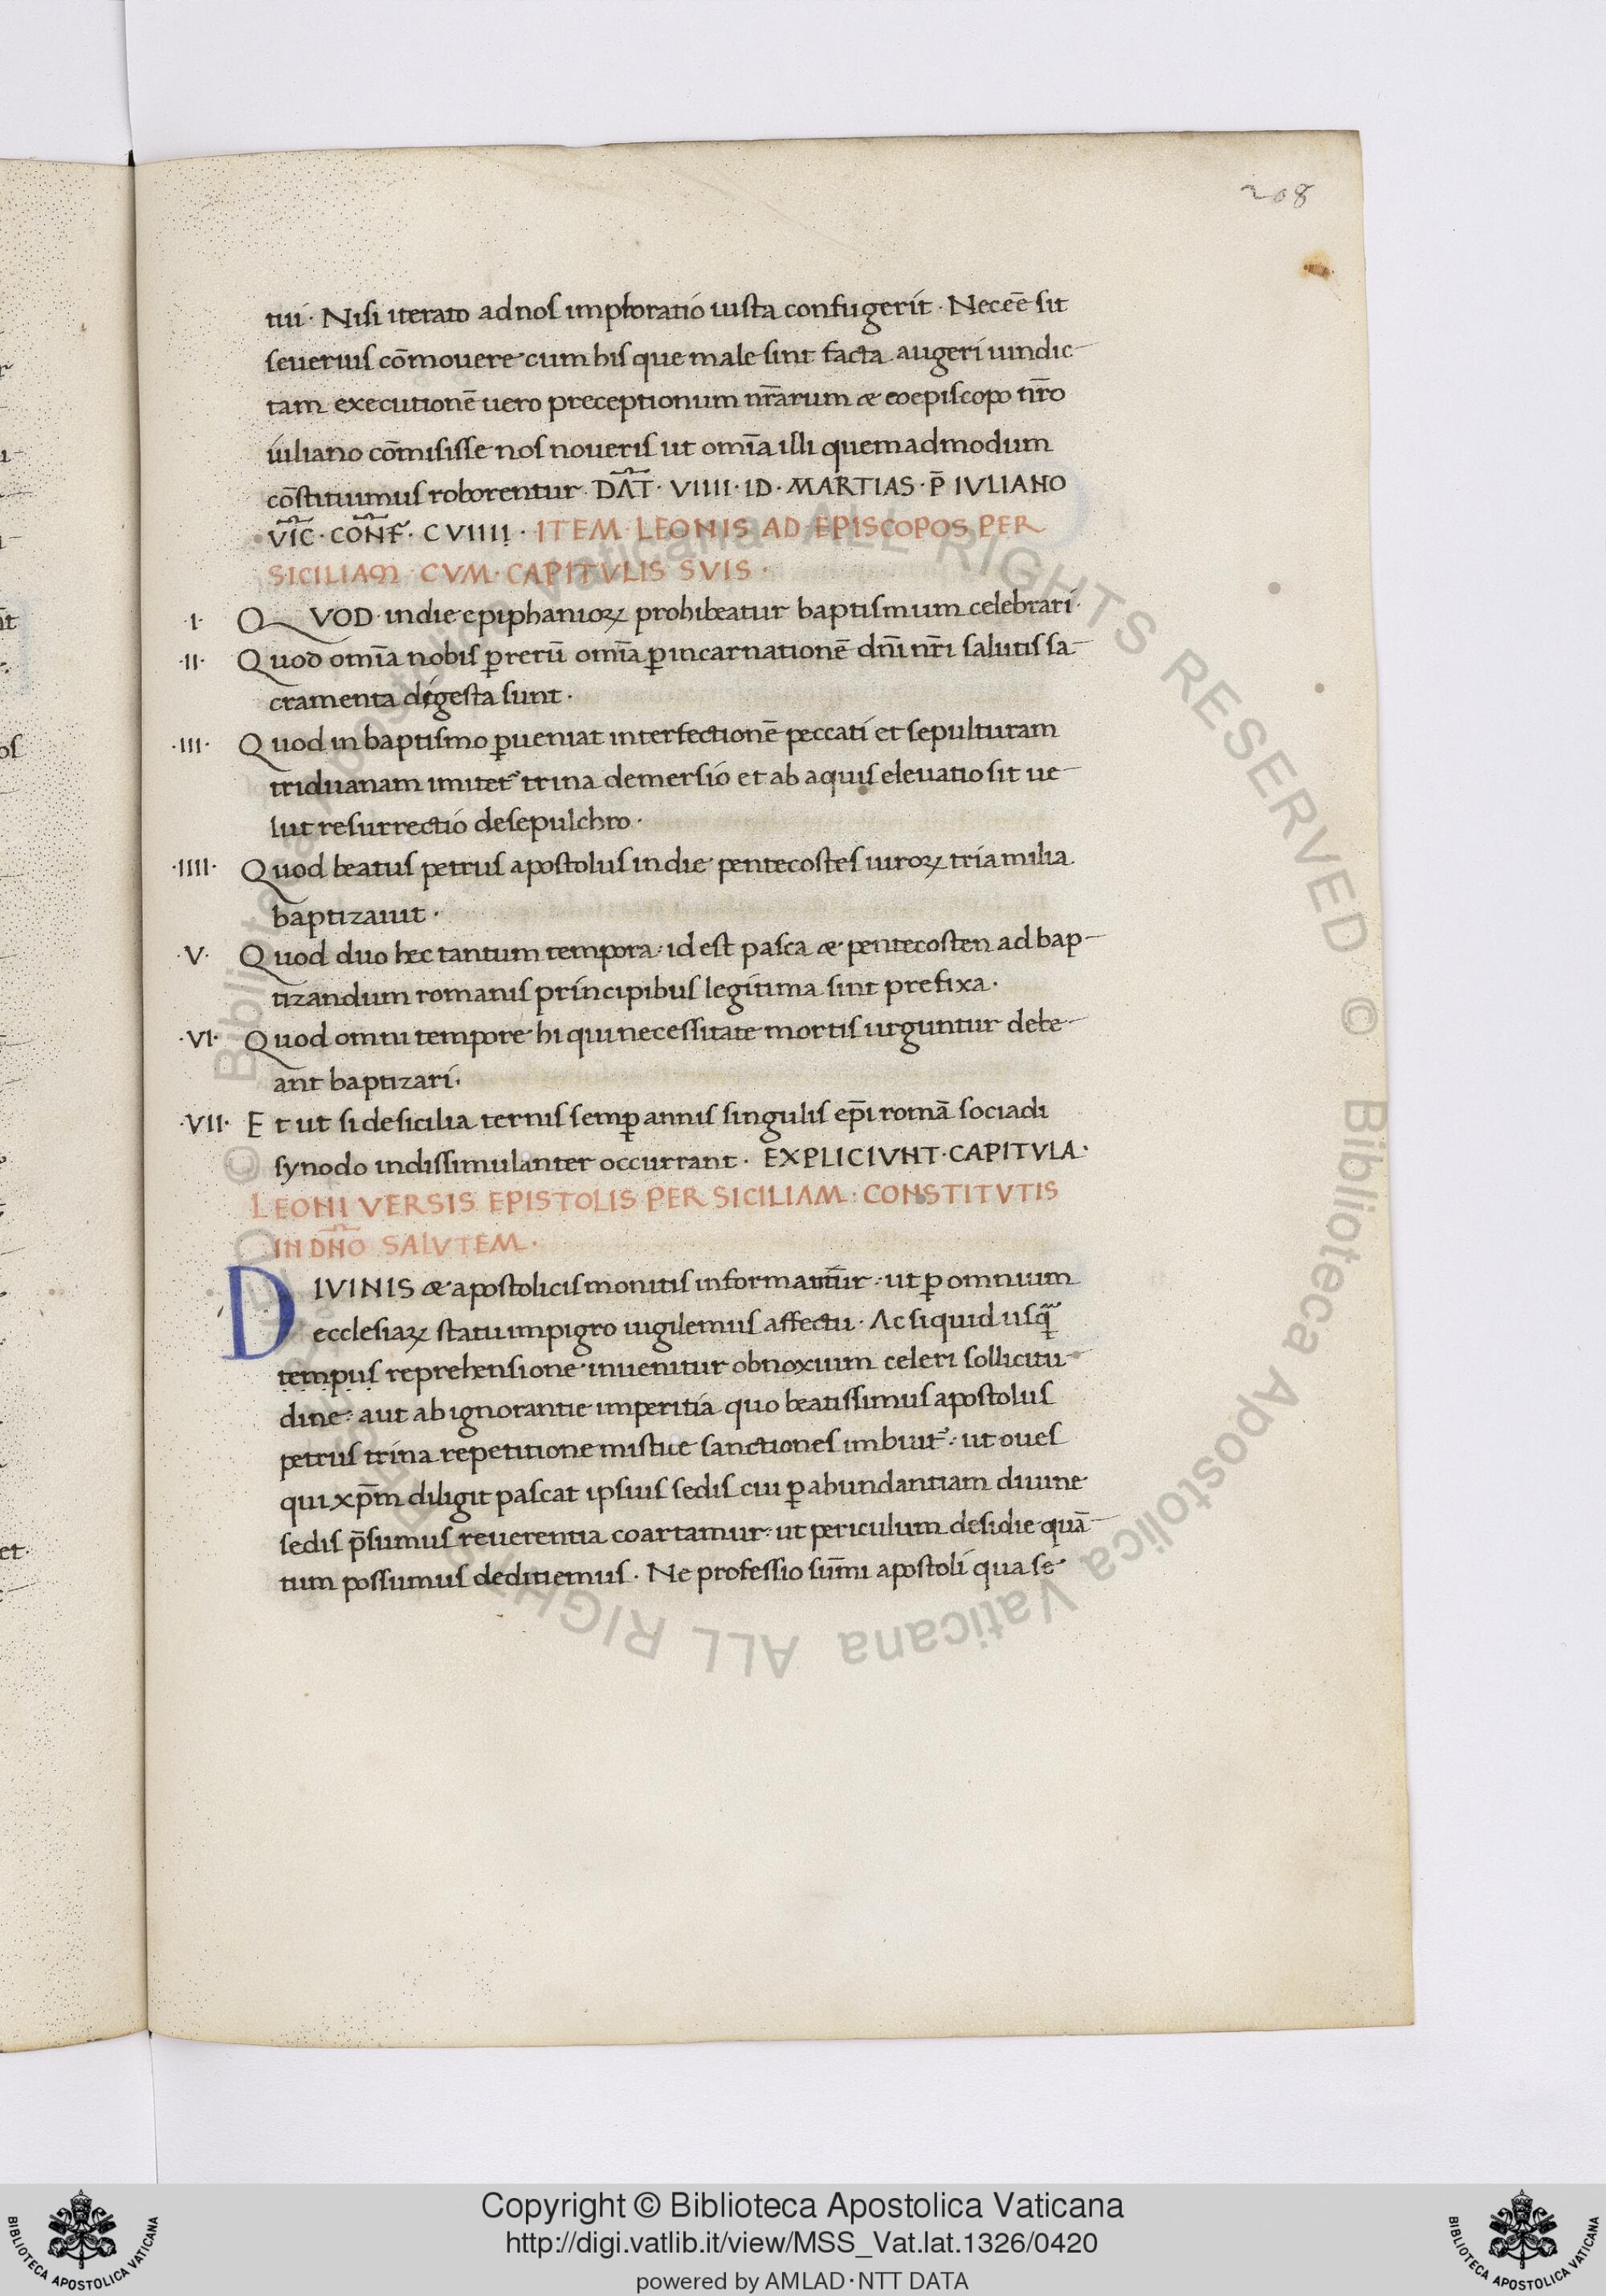 208
tui · Nisi iterato ad nos imploratio iusta confugerit · Necēē sit
seuerius cōmouere cum his que male sint facta augeri uindic-
tam executionē uero preceptionum nr̄arum æ coepiscopo nr̄o
iuliano cōmisisse nos noueris ut om̄ia illi quemadmodum
cōstituimus roborentur DA͞T · VIIII · ID · MARTIAS · P̄ IVLIANO
VI͞C · CO͞NF · CVIIII · ITEM LEONIS AD EPISCOPOS PER
SICILIAM CVM CAPITVLIS SVIS ·
·I· QVOD in die epiphanioꝝ prohibeatur baptismum celebrari ·
·II· Quod om̄ia nobis ꝑ rerū om̄ia ꝑ incarnationē dn̄i nr̄i salutis sa-
cramenta digesta sunt ·
·III· Quod in baptismo ꝑueniat interfectionē peccati et sepulturam
triduanam imitet᷑ trina demersio et ab aquis eleuatio sit ue-
lut resurrectio de sepulchro ·
·IIII· Quod beatus petrus apostolus in die pentecostes uiroꝝ tria milia
baptizauit ·
·V· Quod duo hec tantum tempora · id est pasca æ pentecosten ad bap-
tizandum romanis principibus legitima sint prefixa ·
·VI· Quod omni tempore hi qui necessitate mortis urguntur debe-
ant baptizari ·
·VII· Et ut si de sicilia ternis semꝑ annis singulis ep̄i romā sociadi
synodo indissimulanter occurrant · EXPLICIVNT · CAPITVLA ·
LEONI VERSIS EPISTOLIS PER SICILIAM : CONSTITVTIS
IN DN͞O SALVTEM ·
DIVINIS æ apostolicis monitis informamur · ut ꝑ omnium
ecclesiaꝝ statu impigro uigilemus affectu · Ac si quid usq̄
tempus reprehensione inuenitur obnoxium celeri sollicitu-
dine : aut ab ignorantie imperitia quo beatissimus apostolus
petrus trina repetitione mistice sanctiones imbuit᷑ : ut oues
qui xp̄m diligit pascat ipsius sedis cui ꝑ abundantiam diuine
sedis p̄sumus reuerentia coartamur · ut periculum desidie quā-
tum possumus deditiemus · Ne professio sūmi apostoli qua se
© Biblioteca Apostolica Vaticana ALL RIGHTS RESERVED © Biblioteca Apostolica Vaticana ALL RIGHTS RESERVED
BIBLIOTECA APOSTOLICA VATICANA
Copyright © Biblioteca Apostolica Vaticana
http://digi.vatlib.it/view/MSS_Vat.lat.1326/0420
powered by AMLAD·NTT DATA
BIBLIOTECA APOSTOLICA VATICANA